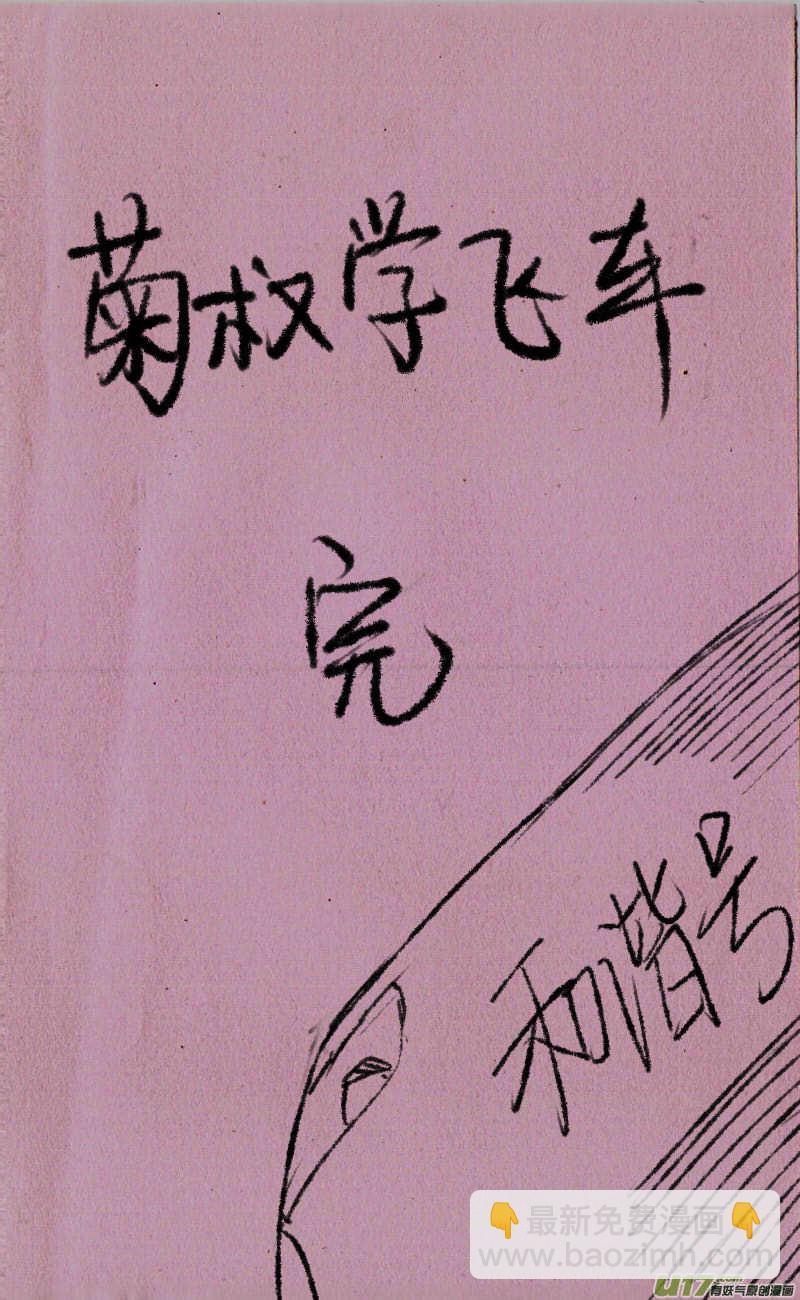 菊叔学飞车
完
和谐号
👇最新免费漫画👇
www.baozimh.com
U17.com
有妖气原创漫画